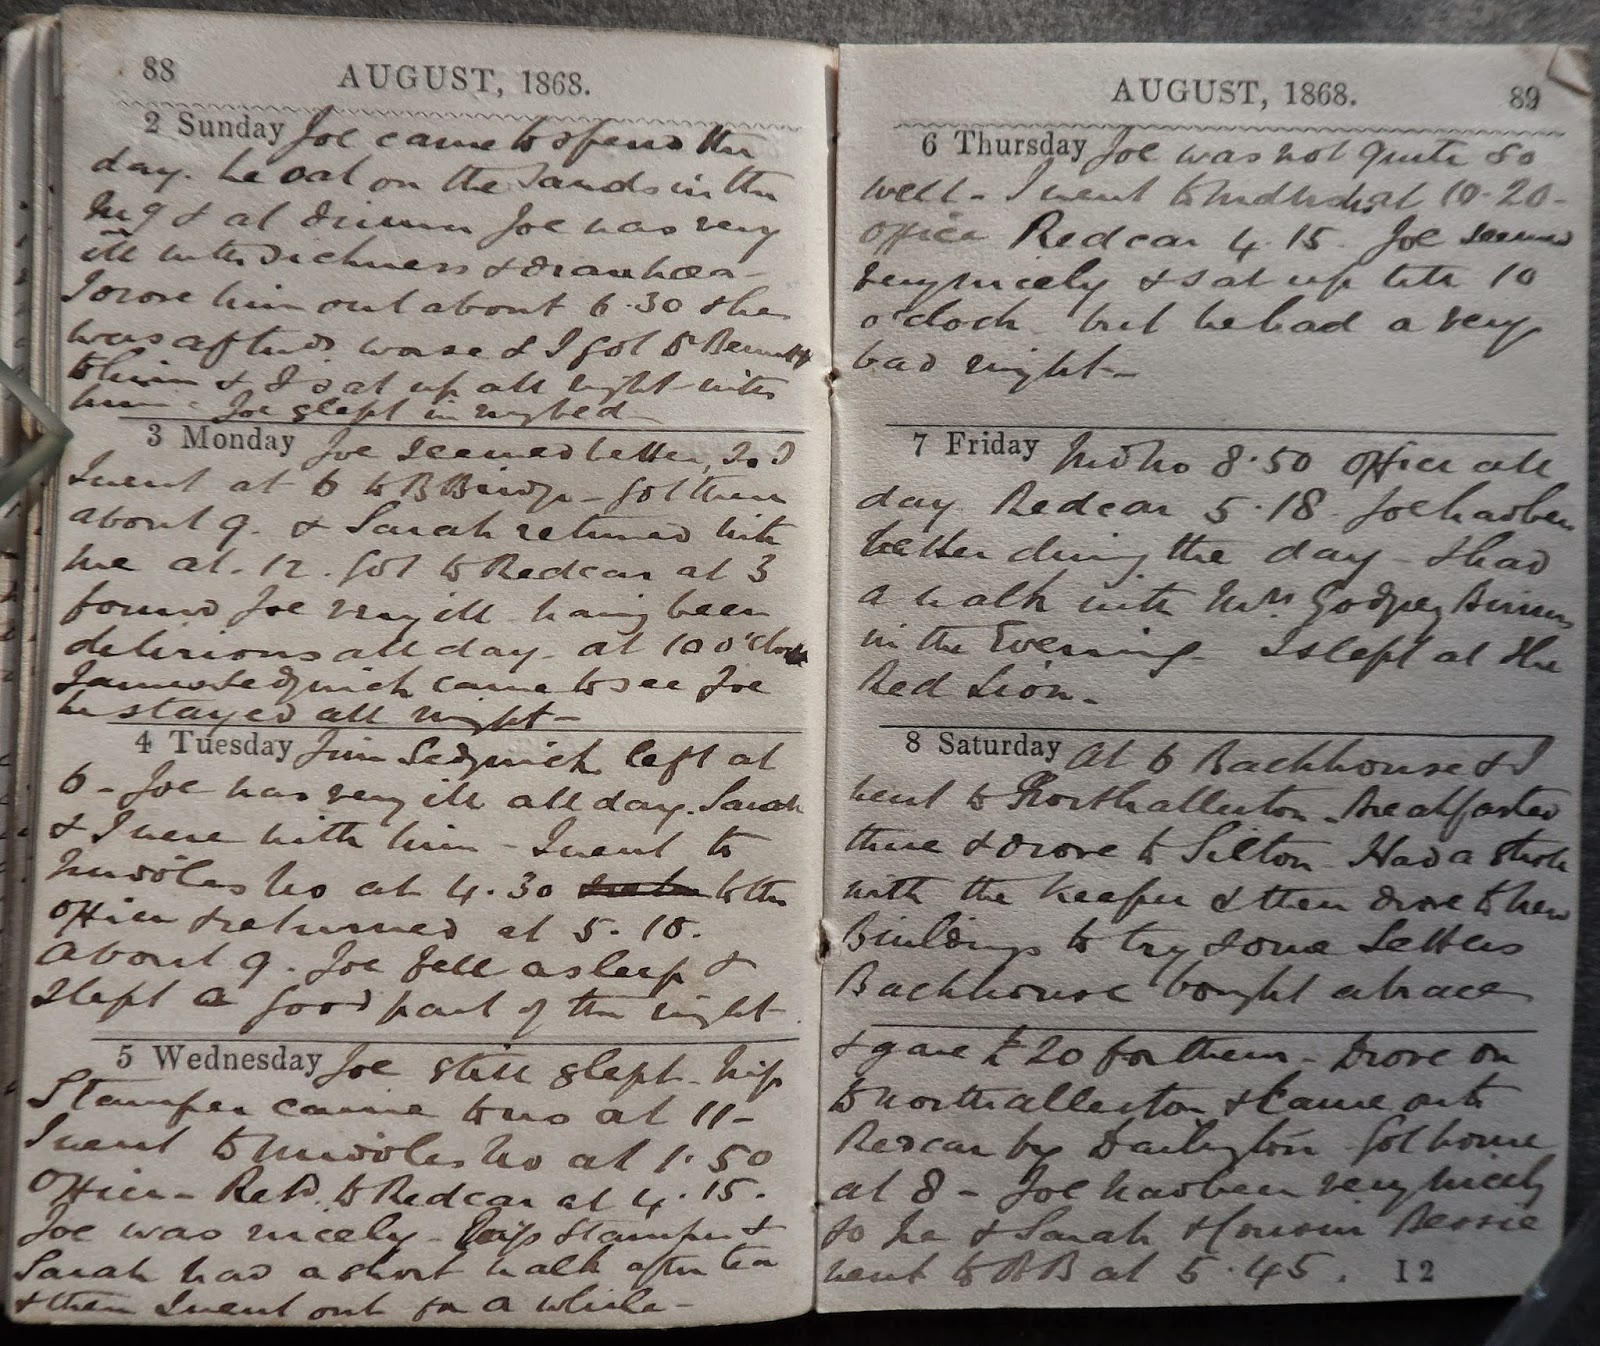 88
AUGUST, 1868.
2 Sunday Joe came to spend the
day. he sat on the Sands in the
Mg & at dinner Joe was very
ill with Sickness & diarrhœa -
I drove him out about 6.30 & he
was aftwds worse & I got Dr Bennett
to him & I sat up all night with
him - Joe slept in my bed
3 Monday Joe seemed better, so I
went at 6 to BBridge - got there
about 9. & Sarah returned with
me at 12. Got to Redcar at 3
found Joe very ill having been
delirious all day. at 10 o'clock
James Sedgwick came to see Joe
he stayed all night -
4 Tuesday Jim Sedgwick left at
6 - Joe was very ill all day. Sarah
& I were with him - I went to
Middlesbro at 4.30 to the
office & returned at 5.18.
About 9. Joe fell asleep &
slept a good part of the night.
5 Wednesday Joe still slept -
Stamper came to us at 11 -
I went to Middlesbro at 1.50
Office - Retd. to Redcar at 4.15.
Joe was nicely - Stamper &
Sarah had a short walk after tea
& then I went out for a while -
AUGUST, 1868.
89
6 Thursday Joe was not quite so
well - I went to at 10-20 -
Office Redcar 4.15. Joe seemed
very nicely & sat up till 10
o'clock but he had a very
bad night -
7 Friday Mdbro 8.50 office all
day Redcar 5.18. Joe has been
better during the day - & had
a walk with Mrs Godfrey
in the Evening - I slept at the
Red Lion -
8 Saturday At 6 Backhouse & I
went to Northallerton - breakfasted
there & drove to Silton - Had a stroll
with the keeper & then drove to New
Buildings to try some Setters
Backhouse bought a brace
& gave £20 for them - Drove on
to Northallerton & came on to
Redcar by Darlington - Got home
at 8 - Joe has been very nicely
so he & Sarah & Bessie
went to BB at 5.45. I 2